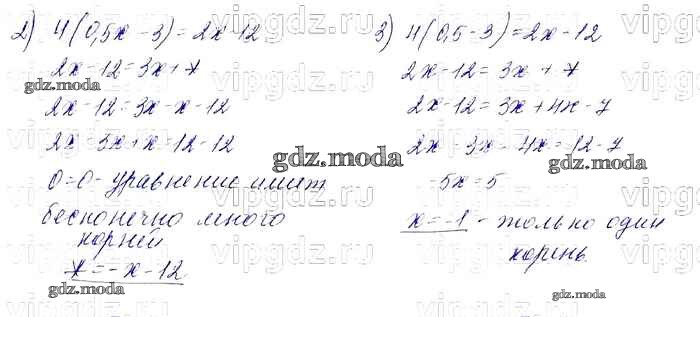 2) 4(0,5x - 3) = 2x - 12
2x - 12 = 3x + *
2x - 12 = 3x - x - 12
2x - 3x + x = 12 - 12
0 = 0 - уравнение имеет
бесконечно много
корней
* = -x - 12
3) 4(0,5 - 3) = 2x - 12
2x - 12 = 3x + *
2x - 12 = 3x + 4x - 7
2x - 3x - 4x = 12 - 7
-5x = 5
x = -1 - только один
корень
gdz.moda
gdz.moda
gdz.moda
gdz.moda
gdz.moda
gdz.moda
vipgdz.ru
vipgdz.ru
vipgdz.ru
vipgdz.ru